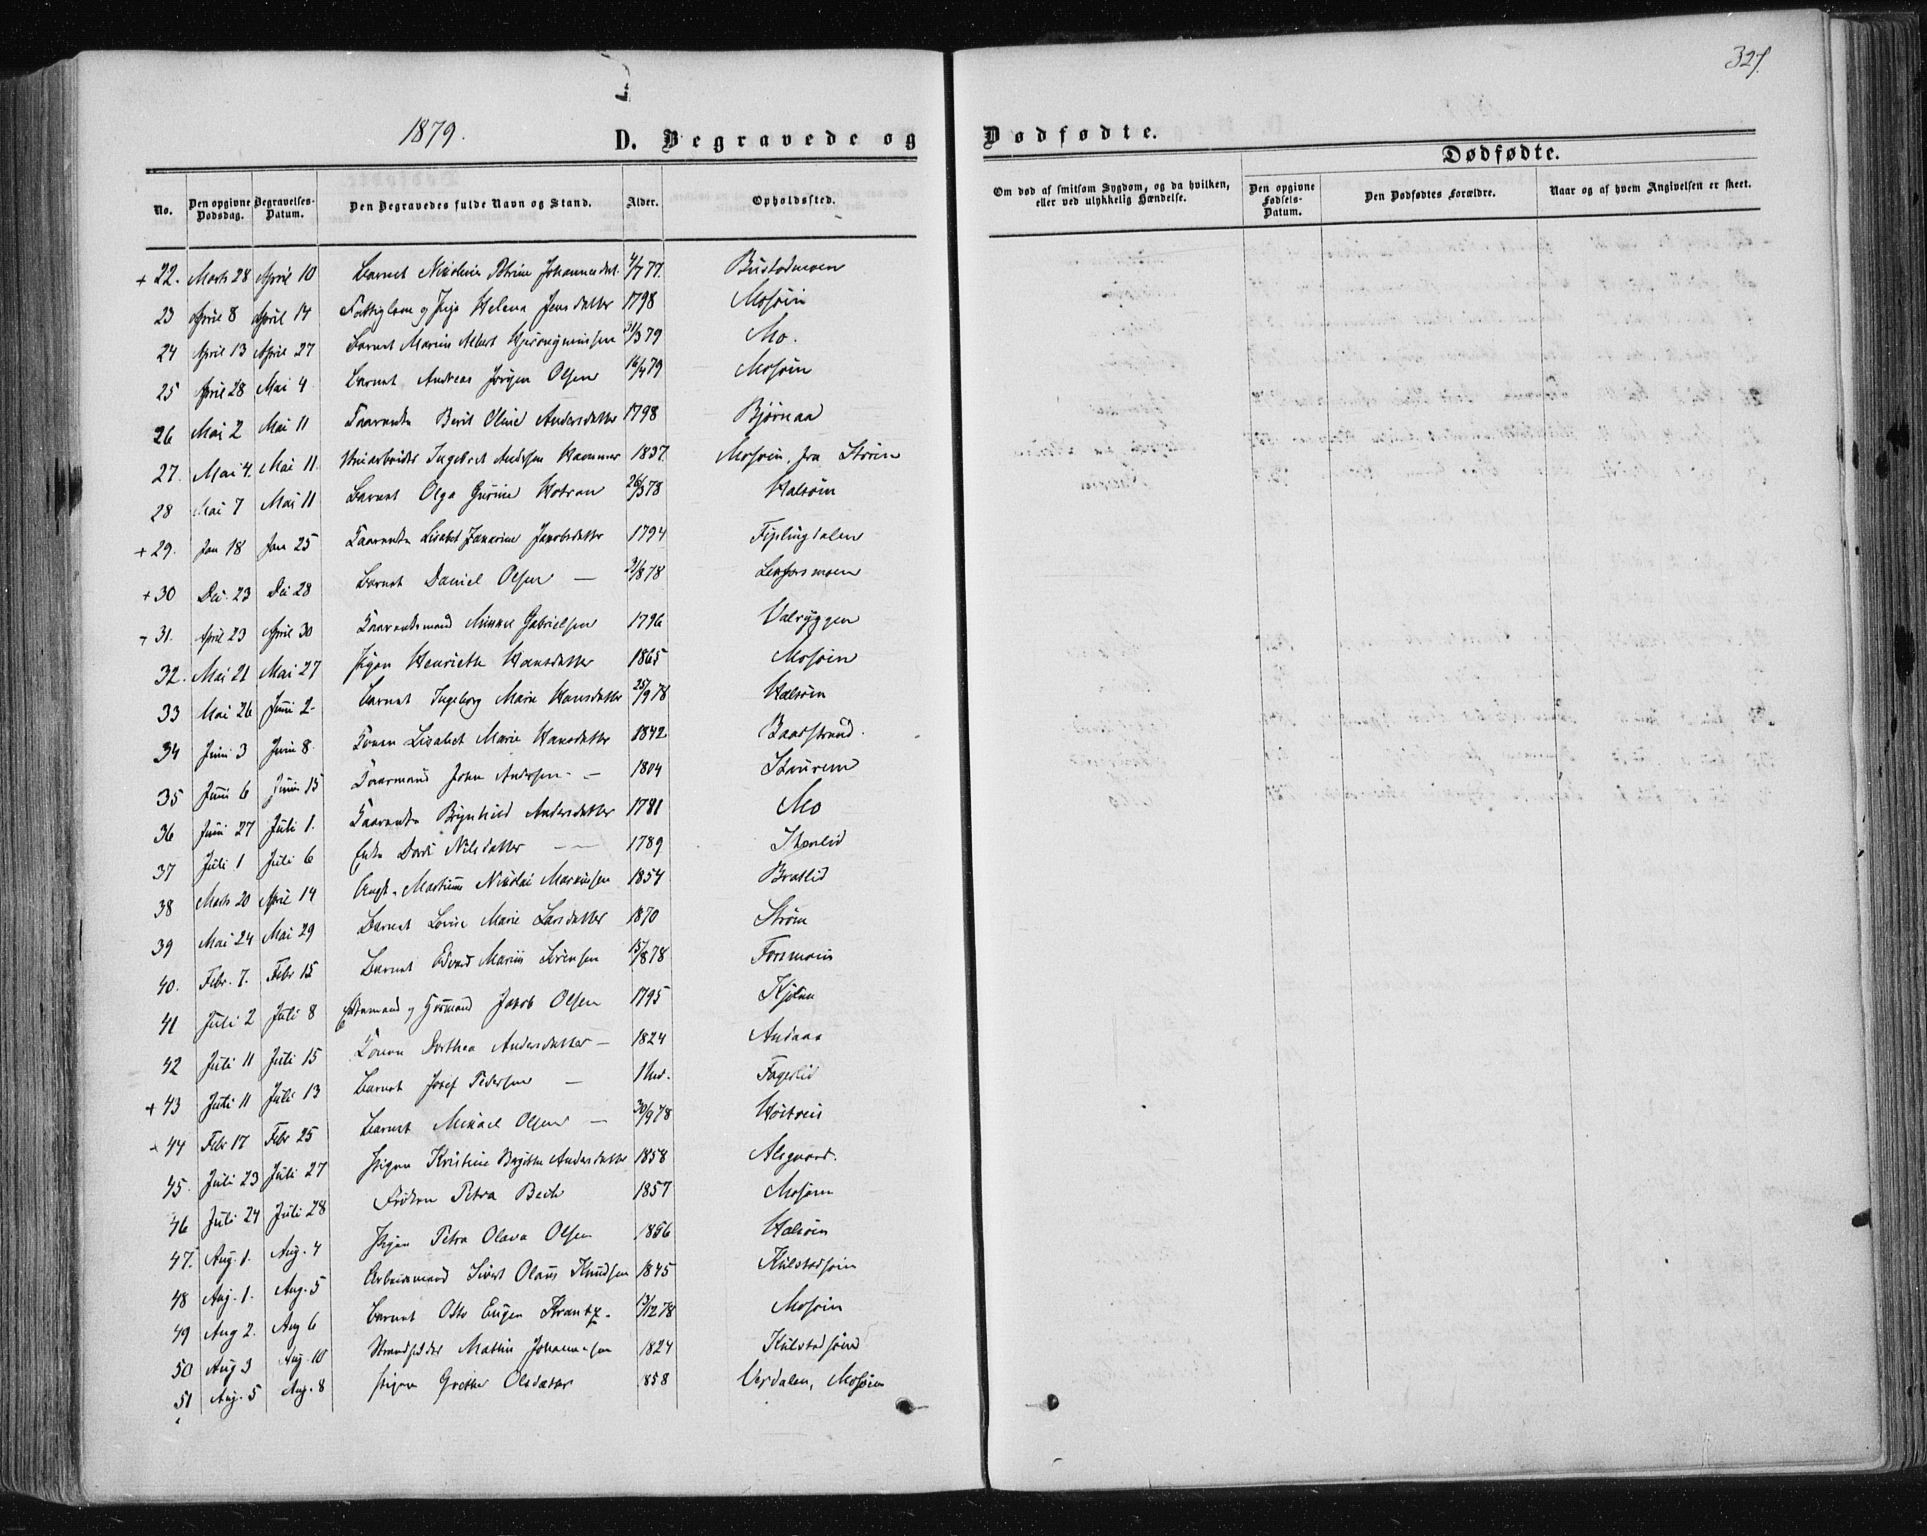 327.
1879.
D. Begravede og Dødfødte.
Dødfødte.
No. Den opgivne Dødsdag. Begravelses-Datum. Den Begravedes fulde Navn og Stand. Alder. Opholdssted. Om død af smitsom Sygdom, og da hvilken, eller ved ulykkelig Hændelse. Den opgivne Fødsels-Datum. Den Dødfødtes Forældre. Naar og af hvem Angivelsen er skeet.
+ 22. Marts 28 April 10 Barnet Nikoline Petrine Johannesdat. 4/7 77. Bustadmoen
23 April 8 April 14 Fattiglem og Pige Helena Jensdatter 1798 Mosøin
24 April 13 April 27 Barnet Marius Albert 31/3 79 Mo.
25 April 28 Mai 4 Barnet Andreas Jørgen Olsen 16/4 79 Mosøin
26 Mai 2 Mai 11 Kaarenke Berit Oline Andersdatter 1798 Bjørnaa
27. Mai 4. Mai 11. Ingebret Andersen Hammer 1837 Mosøin, fra Støren
28 Mai 7 Mai 11 Barnet Olga Gurine Hotran 26/3 78 Halsøin
+ 29. Jan 18 Jan 25 Kaarenke Lisabet Janarine Jakobsdatter 1794 Fiplingdalen
+ 30 Dec. 23 Dec 28 Barnet Daniel Olsen — 21/8 78
31. April 23 April 30 Mikkel Gabrielsen 1796 Valryggen
32. Mai 21 Mai 27 Pigen Henriette Hansdatter 1865 Mosøin
33 Mai 26 Juni 2- Barnet Ingeborg Marie Hansdatter 25/9 78 Halsøin
34 Juni 3 Juni 8. Konen Lisabet Marie Hansdatter 1842 Baadstrand.
35 Juni 6 Juni 15 Kaarmand John Andersen - — 1804 Stauren
36 Juni 27 Juli 1. Kaarenke Brynhild Andersdatter 1781 Mo
37 Juli 1 Juli 6 Enke Dordi Nilsdatter 1789
38 Marts 20 April 14 Ungk. Martinus Nikolai Markussen 1854 Bratlid
39 Mai 24 Mai 29 Barnet Lovise Marie Larsdatter 1870 Strøm
40. Febr. 7. Febr 15 Barnet Edvard Marius Sørensen 15/8 78 Forsmoen
41 Juli 2 Juli 8 Enkemand og Jakob Olsen 1795
42 Juli 11 Juli 15 Konen Dorthea Andersdatter — 1824
+ 43 Juli 11 Juli 13 Barnet Josef Pedersen — Fagerlid
44 Febr 17 Febr 25 Barnet Mikael Olsen — 30/9 78
45. Juli 23 Juli 27 Pigen Kristine Birgitte Andersdatter 1858 Alsgaard.
46 Juli 24 Juli 28 Frøken Petra Bech 1857 Mosøen
47. Aug. 1. Aug. 4 Pigen Petra Olava Olsen 1856 Halsøin
48 Aug. 1. Aug. 5 Arbeidsmand Sivert Olaus Knudsen 1845 Kulstadsøin
49 Aug 2. Aug 6 Barnet Otto Eugen Krantz. 13/12 78 Mosøin
50 Aug 3 Aug. 10 Strandsidder Mathis Johannesen 1824 Kulstadsøen
51 Aug. 5 Aug. 8 Pigen Grethe Olsdatter 858 Verdalen, Mosøen